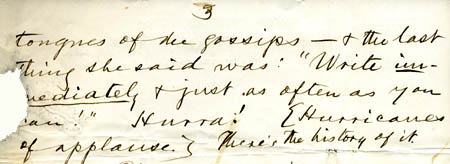 3
tongues of the gossips — & the last
thing she said was: "Write im-
mediately & just as often as you
can!" Hurra! {Hurricanes
of applause.} There's the history of it.